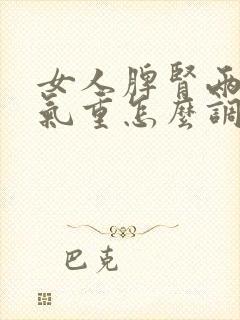 女人脾腎兩
氣重怎麼調
巴克